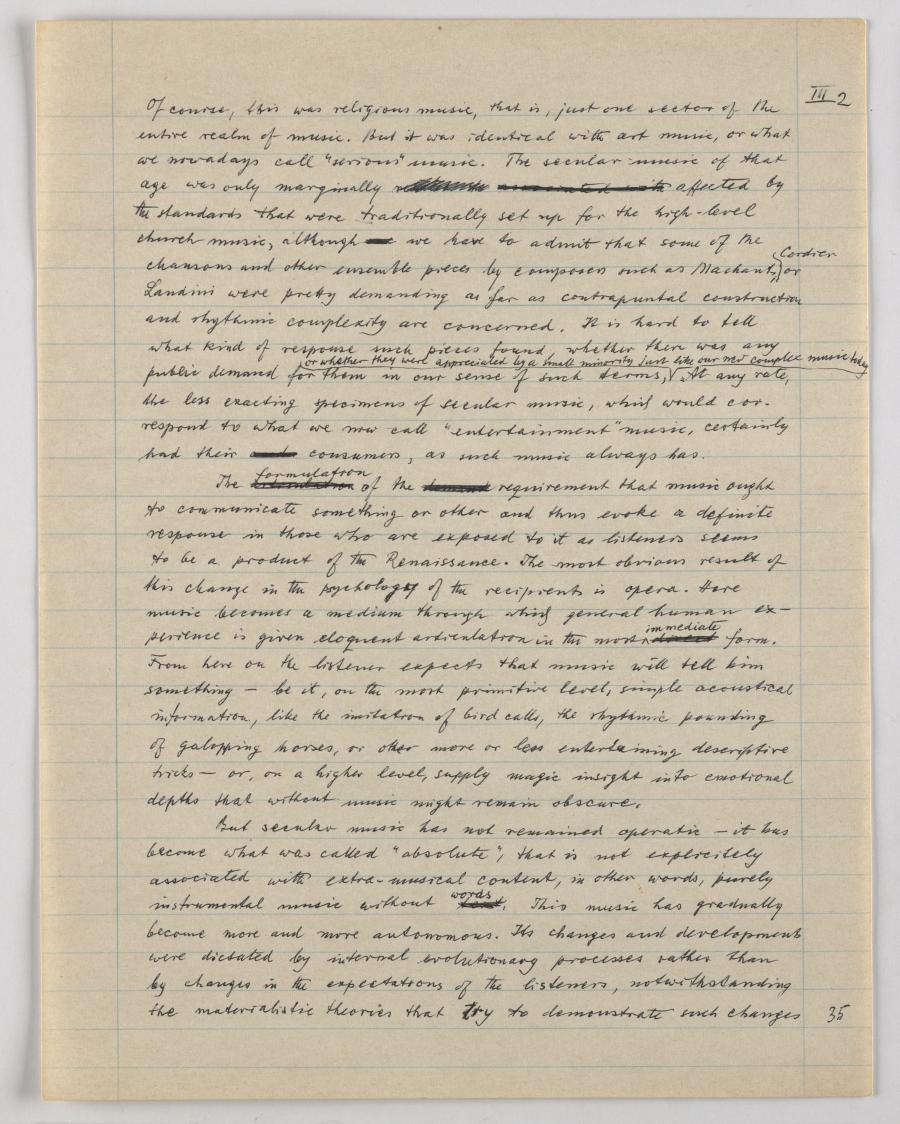 III 2
Of course, this was religious music, that is, just one sector of the
entire realm of music. But it was identical with art music, or what
we nowadays call "serious" music. The secular music of that
age was only marginally associated with affected by
the standards that were traditionally set up for the high-level
church music, although we have to admit that some of the
Cordier
chansons and other ensemble pieces by composers such as Machaut, or
Landini were pretty demanding as far as contrapuntal construction
and rhythmic complexity are concerned. It is hard to tell
what kind of response such pieces found, whether there was any
or whether they were appreciated by a small minority just like our new complex music today
public demand for them in our sense of such terms, At any rate,
the less exacting specimens of secular music, which would cor-
respond to what we now call "entertainment" music, certainly
had their and consumers, as such music always has.
formulation
The of the demand requirement that music ought
to communicate something or other and thus evoke a definite
response in those who are exposed to it as listeners seems
to be a product of the Renaissance. The most obvious result of
this change in the psychology of the recipients is opera. Here
music becomes a medium through which general human ex-
immediate
perience is given eloquent articulation in the most direct form.
From here on the listener expects that music will tell him
something – be it, on the most primitive level, simple acoustical
information, like the imitation of bird calls, the rhythmic pounding
of galopping horses, or other more or less entertaining descriptive
tricks – or, on a higher level, supply magic insight into emotional
depths that without music might remain obscure.
But secular music has not remained operatic – it has
become what was called "absolute", that is not explicitely
associated with extra-musical content, in other words, purely
words
instrumental music without text. This music has gradually
become more and more autonomous. Its changes and developments
were dictated by internal evolutionary processes rather than
by changes in the expectations of the listeners, notwithstanding
the materialistic theories that try to demonstrate such changes
35